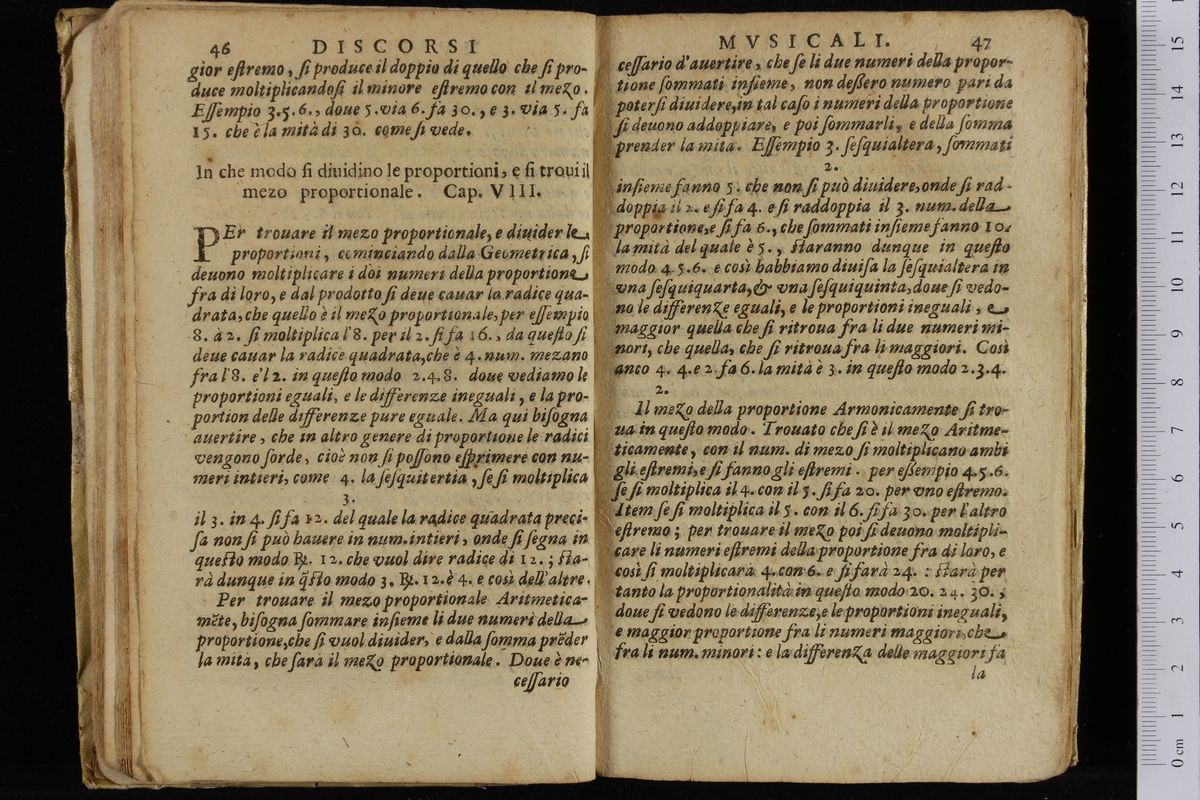 46 DISCORSI
gior eſtremo, ſi produce il doppio di quello che ſi pro-
duce moltiplicandoſi il minore eſtremo con il mezo.
Eſſempio 3.5.6., doue 5.via 6.fa 30., e 3. via 5. fa
15. che è la mità di 30. come ſi vede.
In che modo ſi diuidino le proportioni, e ſi troui il
mezo proportionale. Cap. VIII.
PEr trouare il mezo proportionale, e diuider le
proportioni, cominciando dalla Geometrica, ſi
deuono moltiplicare i doi numeri della proportione
fra di loro, e dal prodotto ſi deue cauar la radice qua-
drata, che quello è il mezo proportionale, per eſſempio
8. à 2. ſi moltiplica l'8. per il 2. ſi fa 16., da queſto ſi
deue cauar la radice quadrata, che è 4. num. mezano
fra l'8. e'l 2. in queſto modo 2.4.8. doue vediamo le
proportioni eguali, e le differenze ineguali, e la pro-
portion delle differenze pure eguale. Ma qui biſogna
auertire, che in altro genere di proportione le radici
vengono ſorde, cioè non ſi poſſono eſprimere con nu-
meri intieri, come 4. la ſeſquitertia, ſe ſi moltiplica
3.
il 3. in 4. ſi fa 12. del quale la radice quadrata preci-
ſa non ſi può hauere in num. intieri, onde ſi ſegna in
queſto modo ℞. 12. che vuol dire radice di 12.; ſta-
rà dunque in q̃ſto modo 3. ℞. 12. è 4. e così dell'altre.
Per trouare il mezo proportionale Aritmetica-
mẽte, biſogna ſommare inſieme li due numeri della
proportione, che ſi vuol diuider, e dalla ſomma prẽder
la mita, che ſarà il mezo proportionale. Doue è ne-
ceſſario
MVSICALI. 47
ceſſario d'auertire, che ſe li due numeri della propor-
tione ſommati inſieme, non deßero numero pari da
poterſi diuidere, in tal caſo i numeri della proportione
ſi deuono addoppiare, e poi ſommarli, e della ſomma
prender la mita. Eſſempio 3. ſeſquialtera, ſommati
2.
inſieme fanno 5. che non ſi può diuidere, onde ſi rad-
doppia il 2. e ſi fa 4. e ſi raddoppia il 3. num. della
proportione, e ſi fa 6., che ſommati inſieme fanno 10.
la mità del quale è 5., ſtaranno dunque in queſto
modo 4 5.6. e così habbiamo diuiſa la ſeſquialtera in
vna ſeſquiquarta, & vna ſeſquiquinta, doue ſi vedo-
no le differenze eguali, e le proportioni ineguali, e
maggior quella che ſi ritroua fra li due numeri mi-
nori, che quella, che ſi ritroua fra li maggiori. Così
anco 4. 4. e 2. fa 6. la mità è 3. in queſto modo 2.3.4.
2.
Il mezo della proportione Armonicamente ſi tro-
ua in queſto modo. Trouato che ſi è il mezo Aritme-
ticamente, con il num. di mezo ſi moltiplicano ambi
gli eſtremi, e ſi fanno gli eſtremi. per eßempio 4.5.6.
ſe ſi moltiplica il 4. con il 5. ſi fa 20. per vno eſtremo.
Item ſe ſi moltiplica il 5. con il 6. ſi fa 30. per l'altro
eſtremo; per trouare il mezo poi ſi deuono moltipli-
care li numeri eſtremi della proportione fra di loro, e
così ſi moltiplicarà 4. con 6. e ſi farà 24. : ſtarà per
tanto la proportionalità in queſto modo 20. 24. 30.,
doue ſi vedono le differenze, e le proportioni ineguali,
e maggior proportione fra li numeri maggiori, che
fra li num. minori: e la differenza delle maggiori fa
la
0 cm 1 2 3 4 5 6 7 8 9 10 11 12 13 14 15